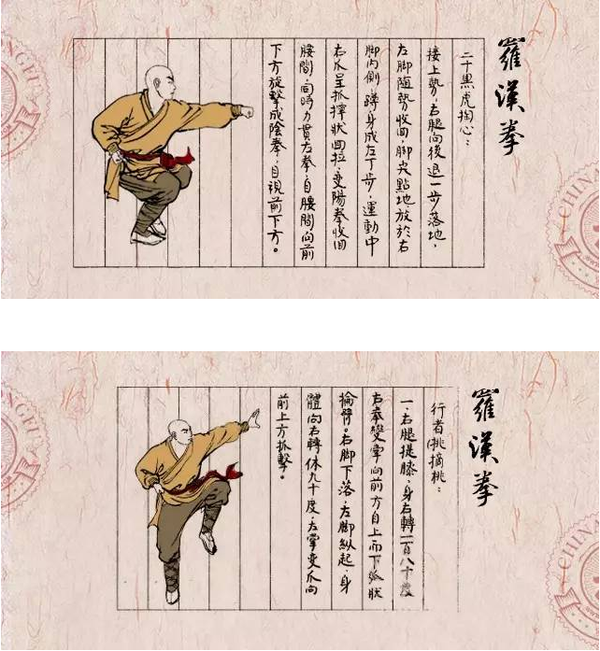 羅漢拳
二十黑虎掏心：
接上勢，右腿向後退一步落地，
左腳隨勢收回，腳尖點地，放於右
腳內側，蹲身成左丁步，運動中
右爪呈抓擰狀回拉，變陽拳收回
腰間，同時力貫左拳，自腰間向前
下方旋擊成陰拳，目視前下方。
羅漢拳
行者 摘桃：
一、右腿提膝，身右轉一百八十度
右拳變掌向前方自上而下弧狀
掄臂。右腳下落，左腳縱起，身
體向右轉体九十度，左掌變爪向
前上方抓擊。